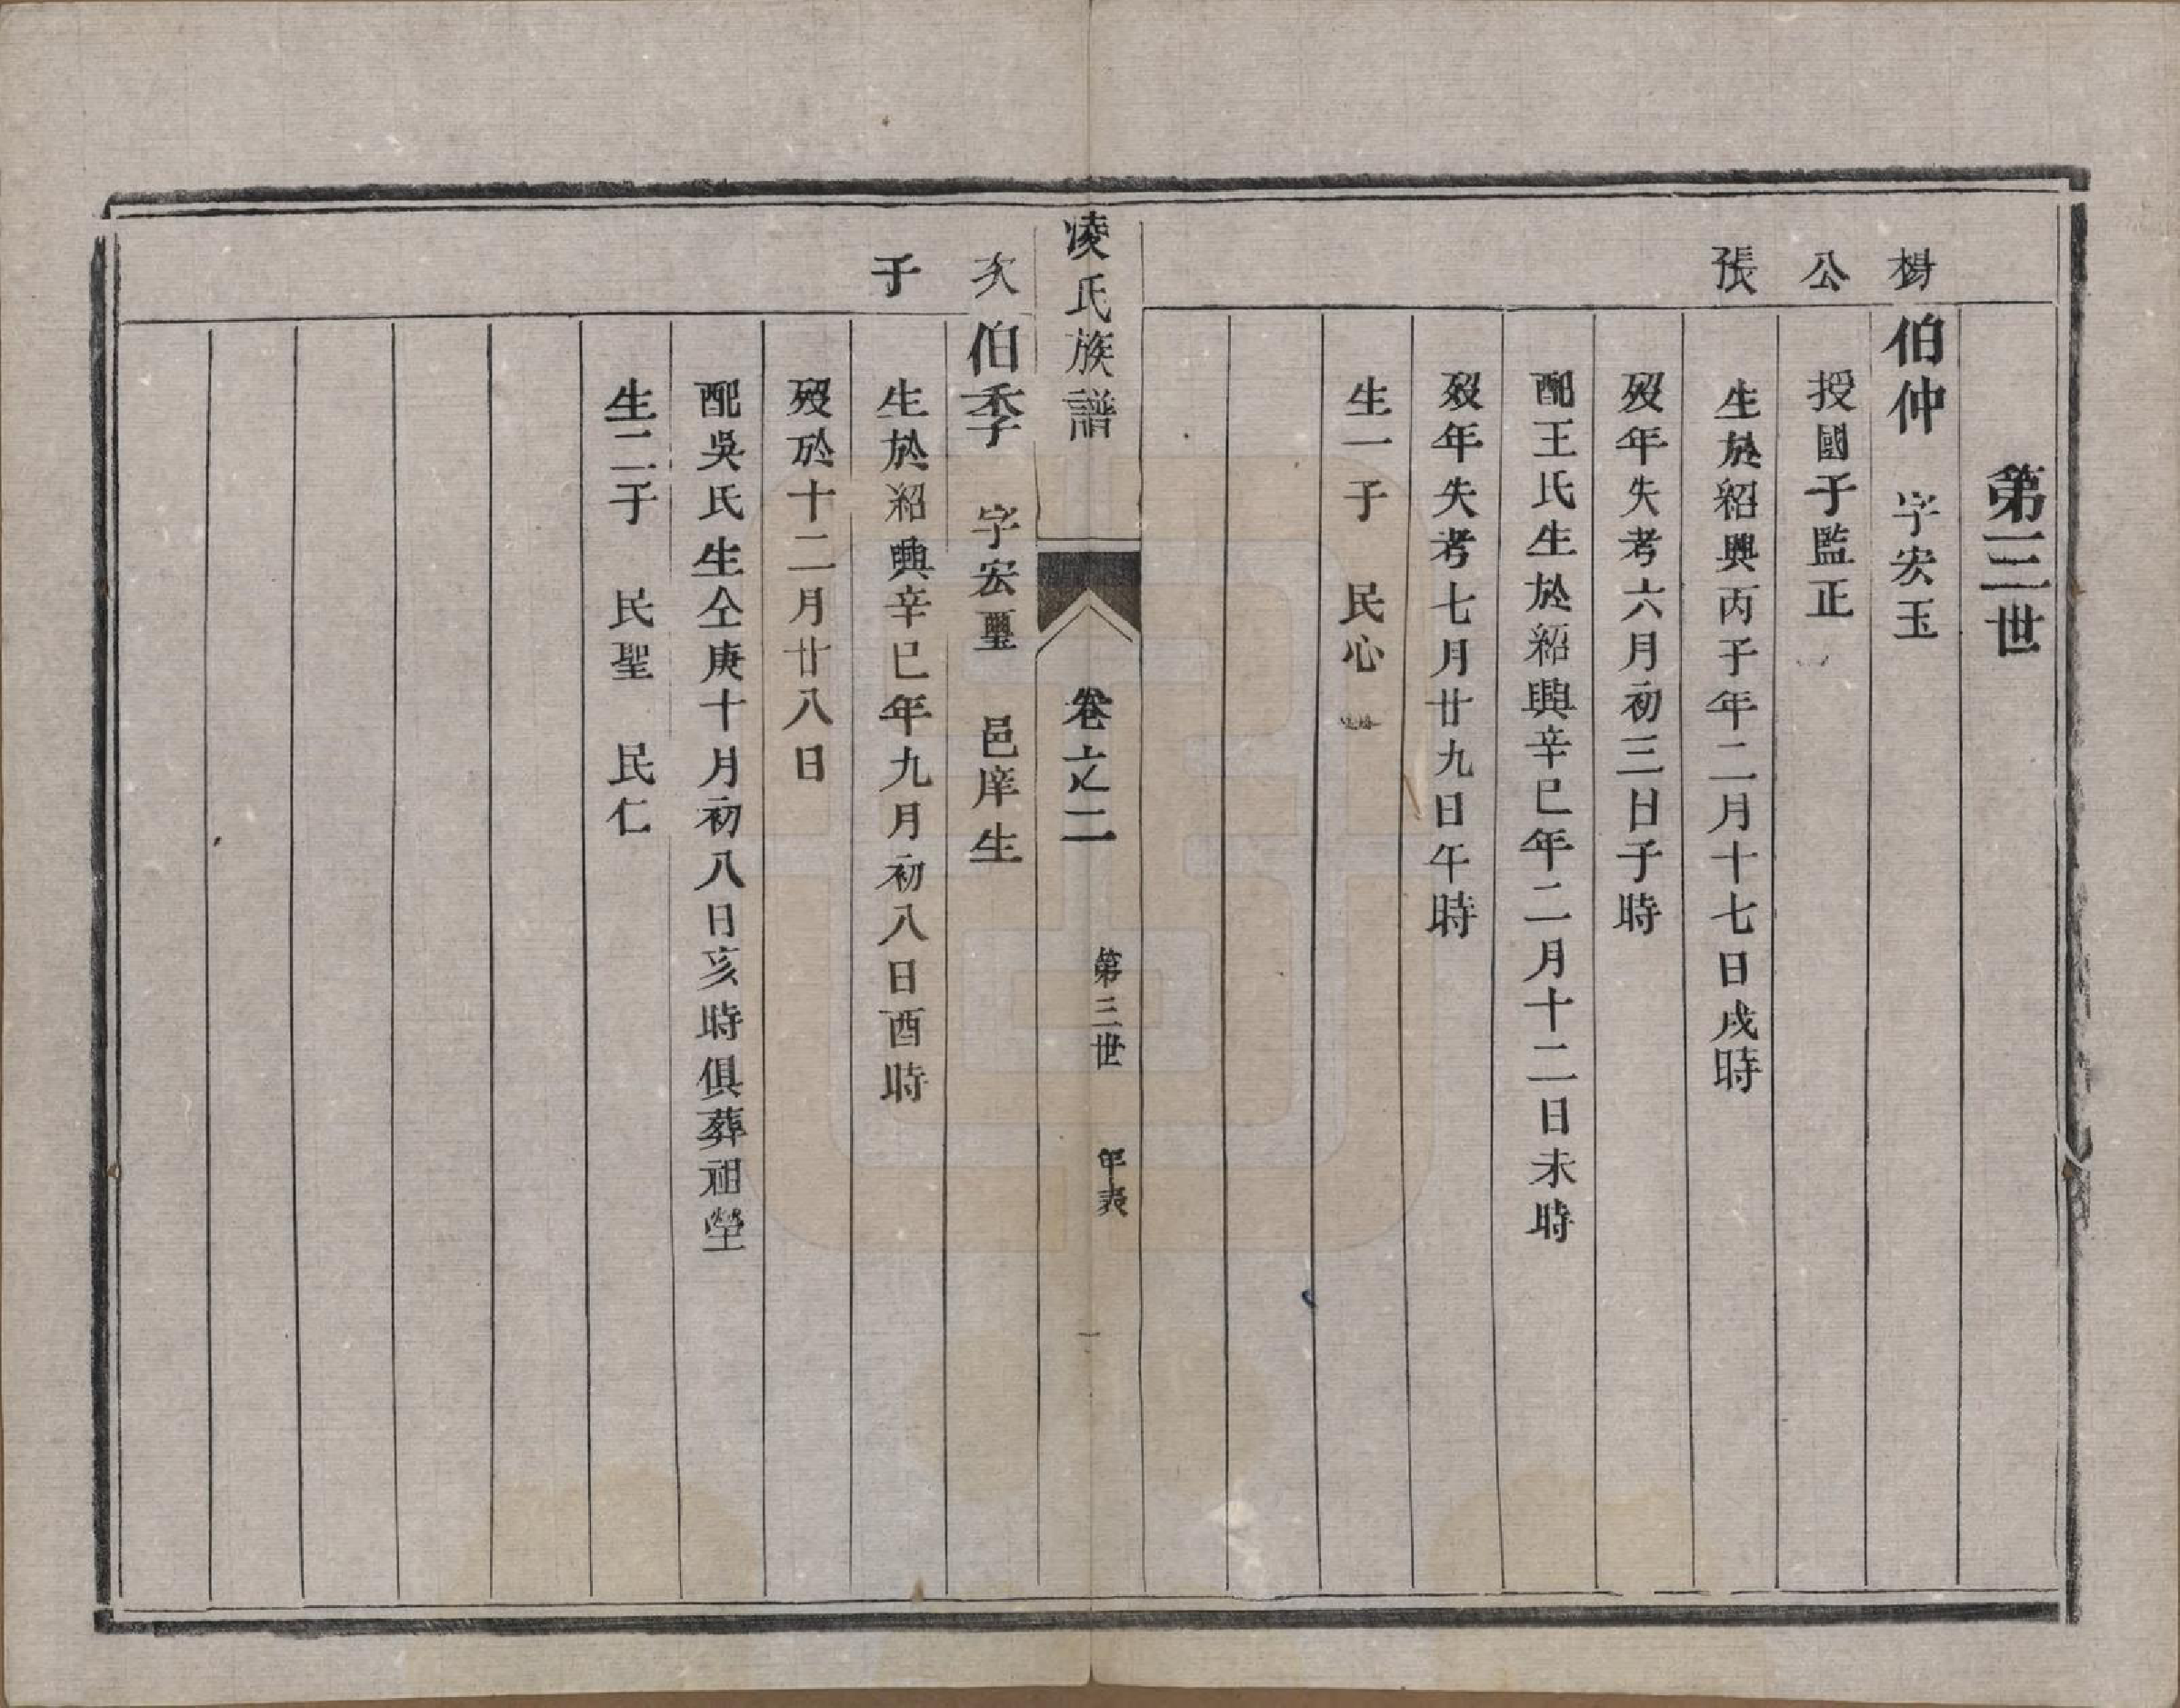 第三世
楊 公 張
伯仲 字宏玉
授國子監正
生於紹興丙子年二月十七日戌時
歿年失考六月初三日子時
配王氏生於紹興辛巳年二月十二日未時
歿年失考七月廿九日午時
生一子 民心
凌氏族譜 卷之二 第三世 年表 一
次 子
伯季 字宏璽 邑庠生
生於紹興辛巳年九月初八日酉時
歿於十二月廿八日
配吳氏生仝庚十月初八日亥時俱葬祖塋
生二子 民聖 民仁